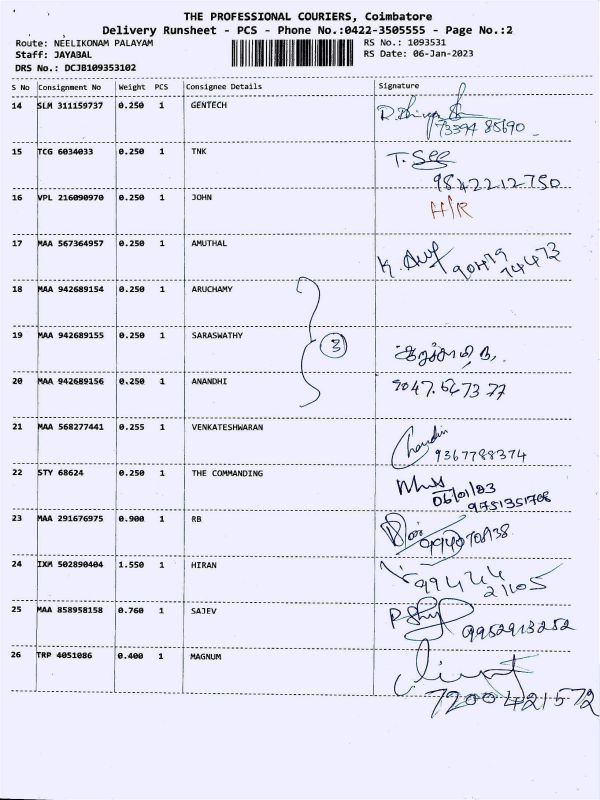 THE PROFESSIONAL COURIERS, Coimbatore
Delivery Runsheet - PCS - Phone No.:0422-3505555 - Page No.:2
Route: NEELIKONAM PALAYAM RS No.: 1093531
Staff: JAYABAL RS Date: 06-Jan-2023
DRS No.: DCJB109353102
S No Consignment No Weight PCS Consignee Details Signature
14 SLM 311159737 0.250 1 GENTECH
73394 85690
15 TCG 6034033 0.250 1 TNK T.
9842212750
16 VPL 216090970 0.250 1 JOHN H/R
17 MAA 567364957 0.250 1 AMUTHAL K.
90479 74473
18 MAA 942689154 0.250 1 ARUCHAMY
19 MAA 942689155 0.250 1 SARASWATHY 3
20 MAA 942689156 0.250 1 ANANDHI
21 MAA 568277441 0.255 1 VENKATESHWARAN
9367788374
22 STY 68624 0.250 1 THE COMMANDING
9751351708
23 MAA 291676975 0.900 1 RB
24 IXM 502890404 1.550 1 HIRAN
99444
21105
25 MAA 858958158 0.760 1 SAJEV
9952913252
26 TRP 4051086 0.400 1 MAGNUM
7200421572